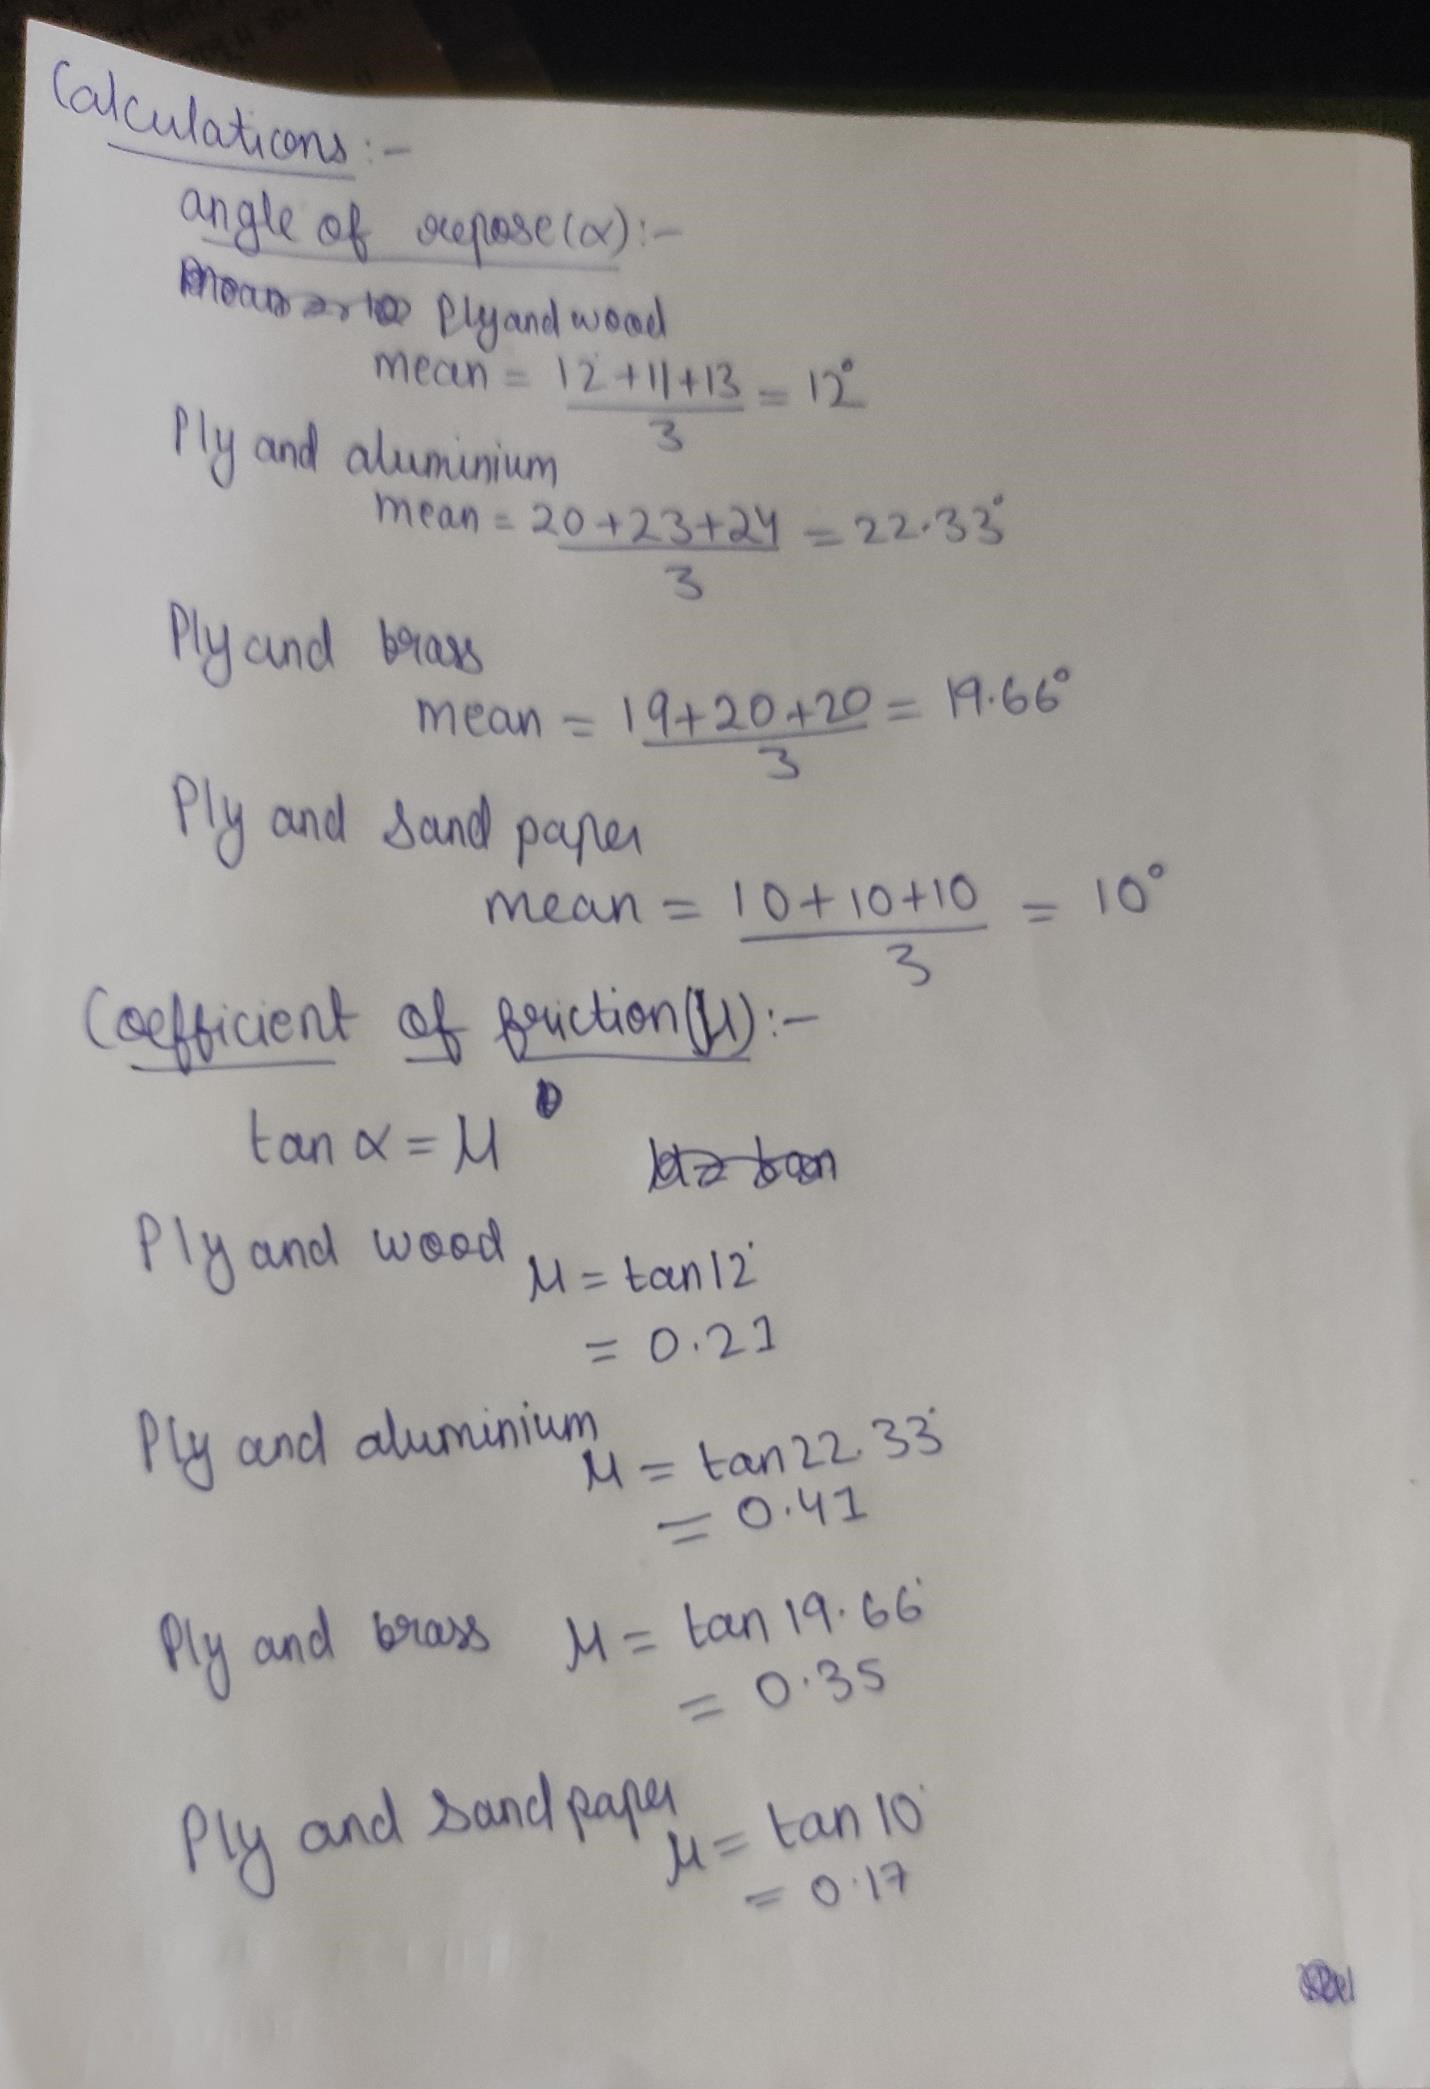 Calculations :-
angle of repose (α) :-
Ply and wood
mean = 12 + 11 + 13 / 3 = 12°
Ply and aluminium
mean = 20 + 23 + 24 / 3 = 22.33°
Ply and brass
mean = 19 + 20 + 20 / 3 = 19.66°
Ply and sand paper
mean = 10 + 10 + 10 / 3 = 10°
Coefficient of friction (μ) :-
tan α = μ
Ply and wood μ = tan 12°
= 0.21
Ply and aluminium μ = tan 22.33°
= 0.41
Ply and brass μ = tan 19.66°
= 0.35
Ply and sand paper μ = tan 10°
= 0.17